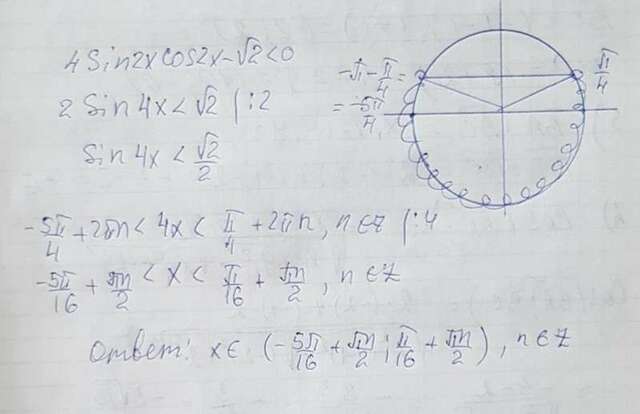 4 Sin2x cos2x - √2 < 0
2 Sin 4x < √2 | :2
Sin 4x < √2/2
-π - π/4 =
= -5π/4
π/4
-5π/4 + 2πn < 4x < π/4 + 2πn, n ∈ Z | :4
-5π/16 + πn/2 < x < π/16 + πn/2, n ∈ Z
Ответ: x ∈ (-5π/16 + πn/2; π/16 + πn/2), n ∈ Z